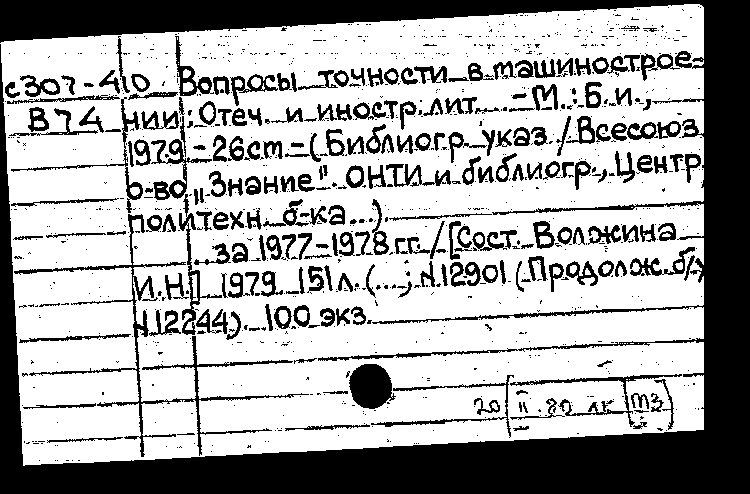 с307-410 Вопросы точности в машинострое-
В74 нии: Отеч. и иностр. лит. - М.: Б. и.,
1979 - 26cm - (Библиогр. указ. / Всесоюз.
о-во "Знание". ОНТИ и библиогр., Центр.
политехн. б-ка...)
... за 1977-1978 гг. / [Сост. Волжина
И.Н.] 1979. 151 л. (...; N 12901 (Продолж. б/у
N 12244). 100 экз.
20 II 80 лк МЗ